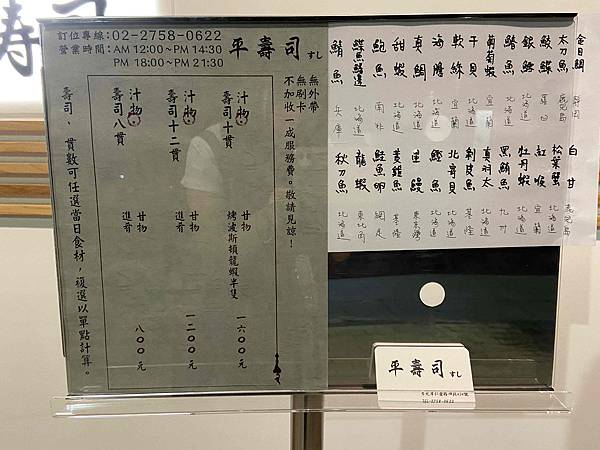 壽司
訂位專線:02-2758-0622
營業時間:AM 12:00~PM 14:30
PM 18:00~PM 21:30
平壽司 すし
無外帶
無刷卡
不加收一成服務費。敬請見諒!
壽司十貫
汁物
甘物
烤波斯頓龍蝦半隻
一六〇〇元
壽司十二貫
汁物
甘物
進肴
一二〇〇元
壽司八貫
汁物
甘物
進肴
八〇〇元
壽司、貫數可任選當日食材,複選以單點計算。
金目鯛 靜岡
太刀魚 鹿兒島
鮫鰈
銀鱈 北海道
鰆魚 北海道
葡萄蝦 宜蘭
干貝 北海道
軟絲 宜蘭
海膽 北海道
真鯛
甜蝦 北海道
鮑魚 南非
鰈魚鰭邊 北海道
鯖魚 兵庫
白甘 鹿兒島
松葉蟹 北海道
紅喉 宜蘭
牡丹蝦 北海道
黑鮪魚 九州
真羽太 北海道
剝皮魚 基隆
北寄貝 北海道
鰹魚 北海道
黃雞魚 基隆
鮭魚卵
龍蝦
秋刀魚 北海道
平壽司 すし
TEL:2758-0622